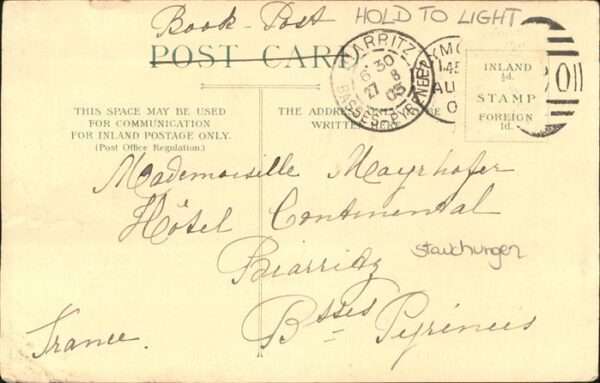 Book-Post HOLD TO LIGHT
POST CARD
BIARRITZ
6 30
27 8
03
BASSES PYRENEES
145
AU
INLAND
½d.
STAMP
FOREIGN
1d.
THIS SPACE MAY BE USED
FOR COMMUNICATION
FOR INLAND POSTAGE ONLY.
(Post Office Regulation.)
THE ADDRESS
WRITTEN HERE
Mademoiselle Mayrhofer
Hôtel Continental
stauchungen
Biarritz
Bsses Pyrénées
France.